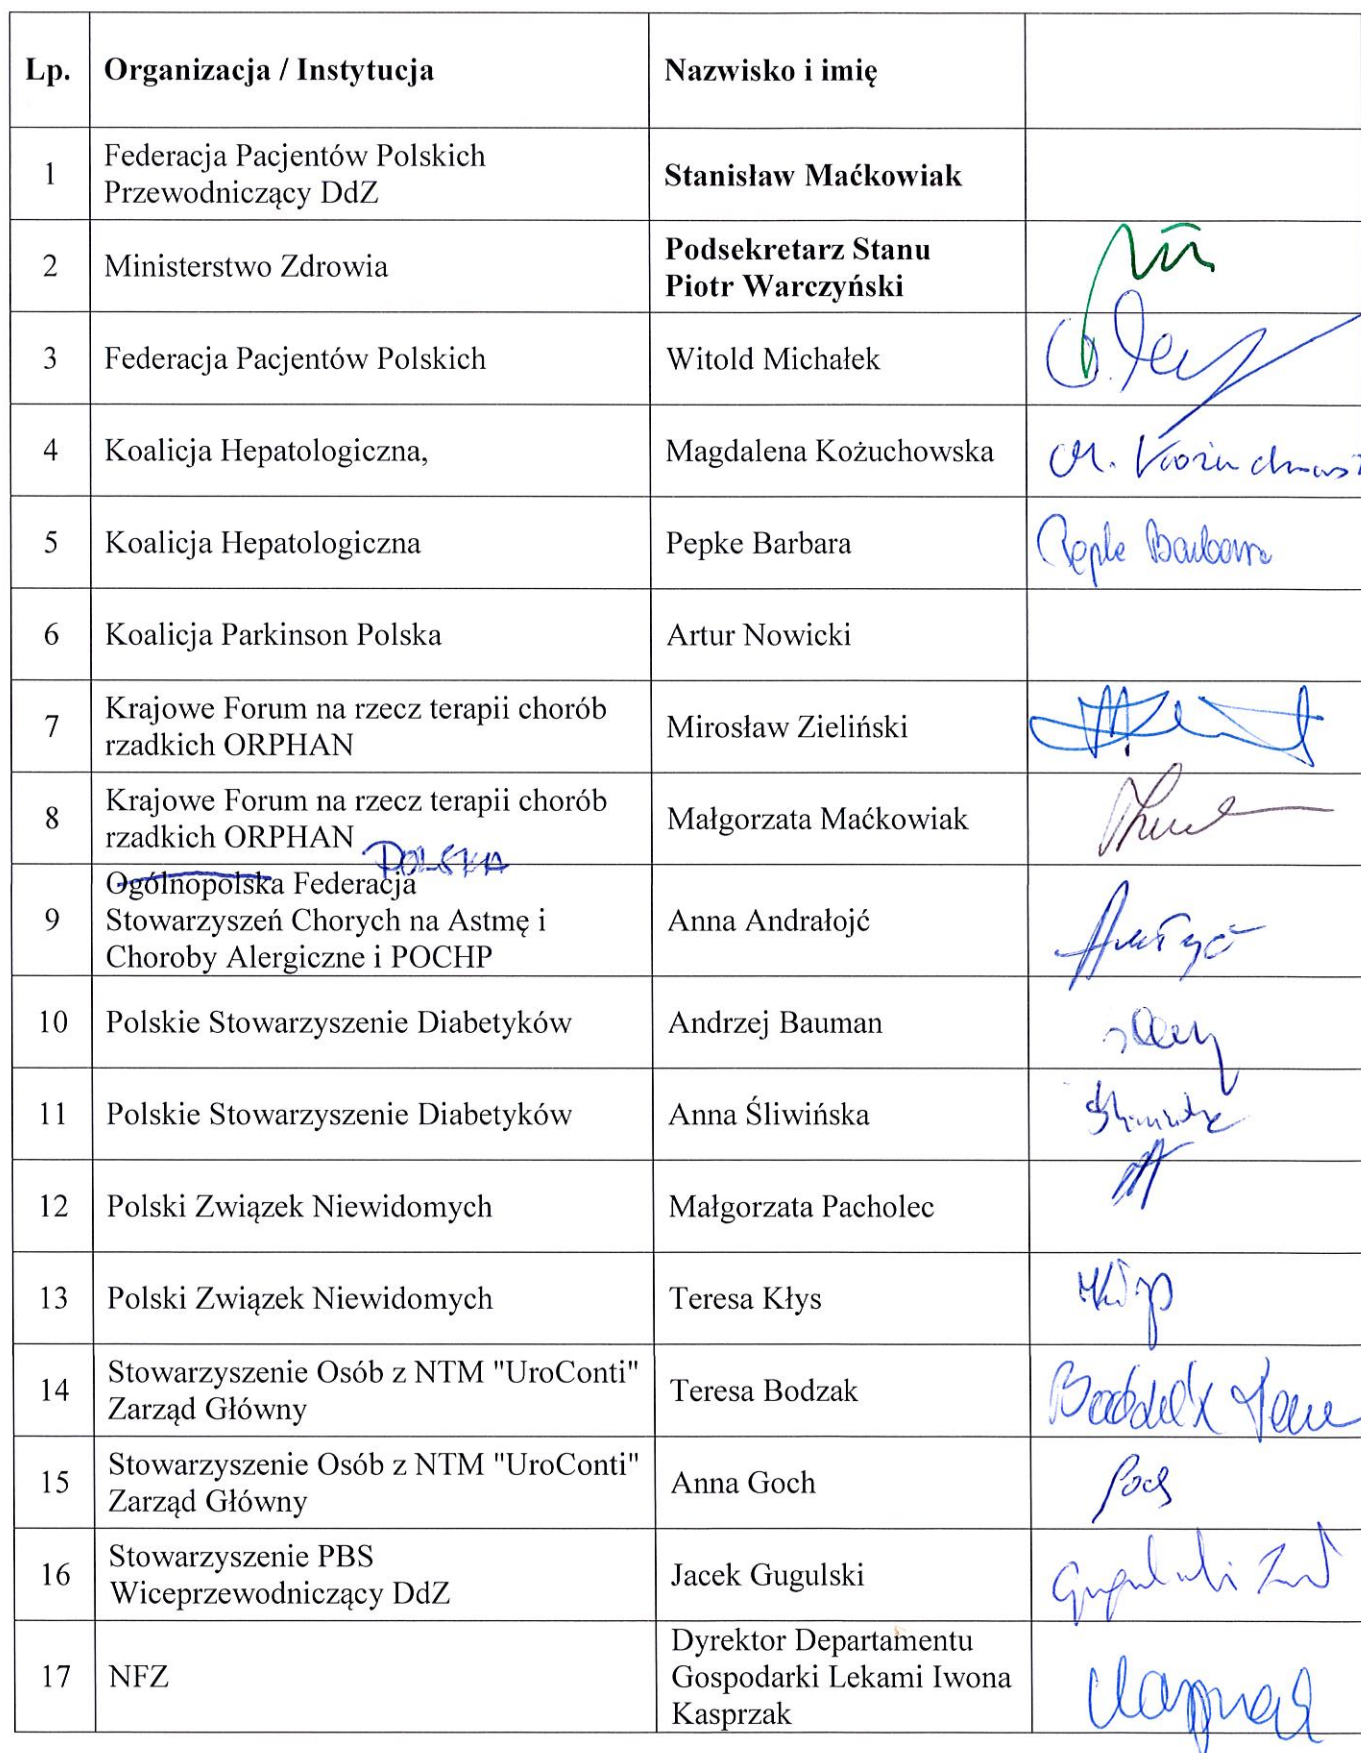 Lp. Organizacja / Instytucja Nazwisko i imię
1 Federacja Pacjentów Polskich
Przewodniczący DdZ
Stanisław Maćkowiak
2 Ministerstwo Zdrowia
Podsekretarz Stanu
Piotr Warczyński
3 Federacja Pacjentów Polskich Witold Michałek
4 Koalicja Hepatologiczna, Magdalena Kożuchowska
5 Koalicja Hepatologiczna Pepke Barbara Pepke Barbara
6 Koalicja Parkinson Polska Artur Nowicki
7 Krajowe Forum na rzecz terapii chorób
rzadkich ORPHAN
Mirosław Zieliński
8 Krajowe Forum na rzecz terapii chorób
rzadkich ORPHAN
Małgorzata Maćkowiak
POLSKA
9 Ogólnopolska Federacja
Stowarzyszeń Chorych na Astmę i
Choroby Alergiczne i POCHP
Anna Andrałojć
10 Polskie Stowarzyszenie Diabetyków Andrzej Bauman
11 Polskie Stowarzyszenie Diabetyków Anna Śliwińska
12 Polski Związek Niewidomych Małgorzata Pacholec
13 Polski Związek Niewidomych Teresa Kłys
14 Stowarzyszenie Osób z NTM "UroConti"
Zarząd Główny
Teresa Bodzak
15 Stowarzyszenie Osób z NTM "UroConti"
Zarząd Główny
Anna Goch
16 Stowarzyszenie PBS
Wiceprzewodniczący DdZ
Jacek Gugulski
17 NFZ
Dyrektor Departamentu
Gospodarki Lekami Iwona
Kasprzak